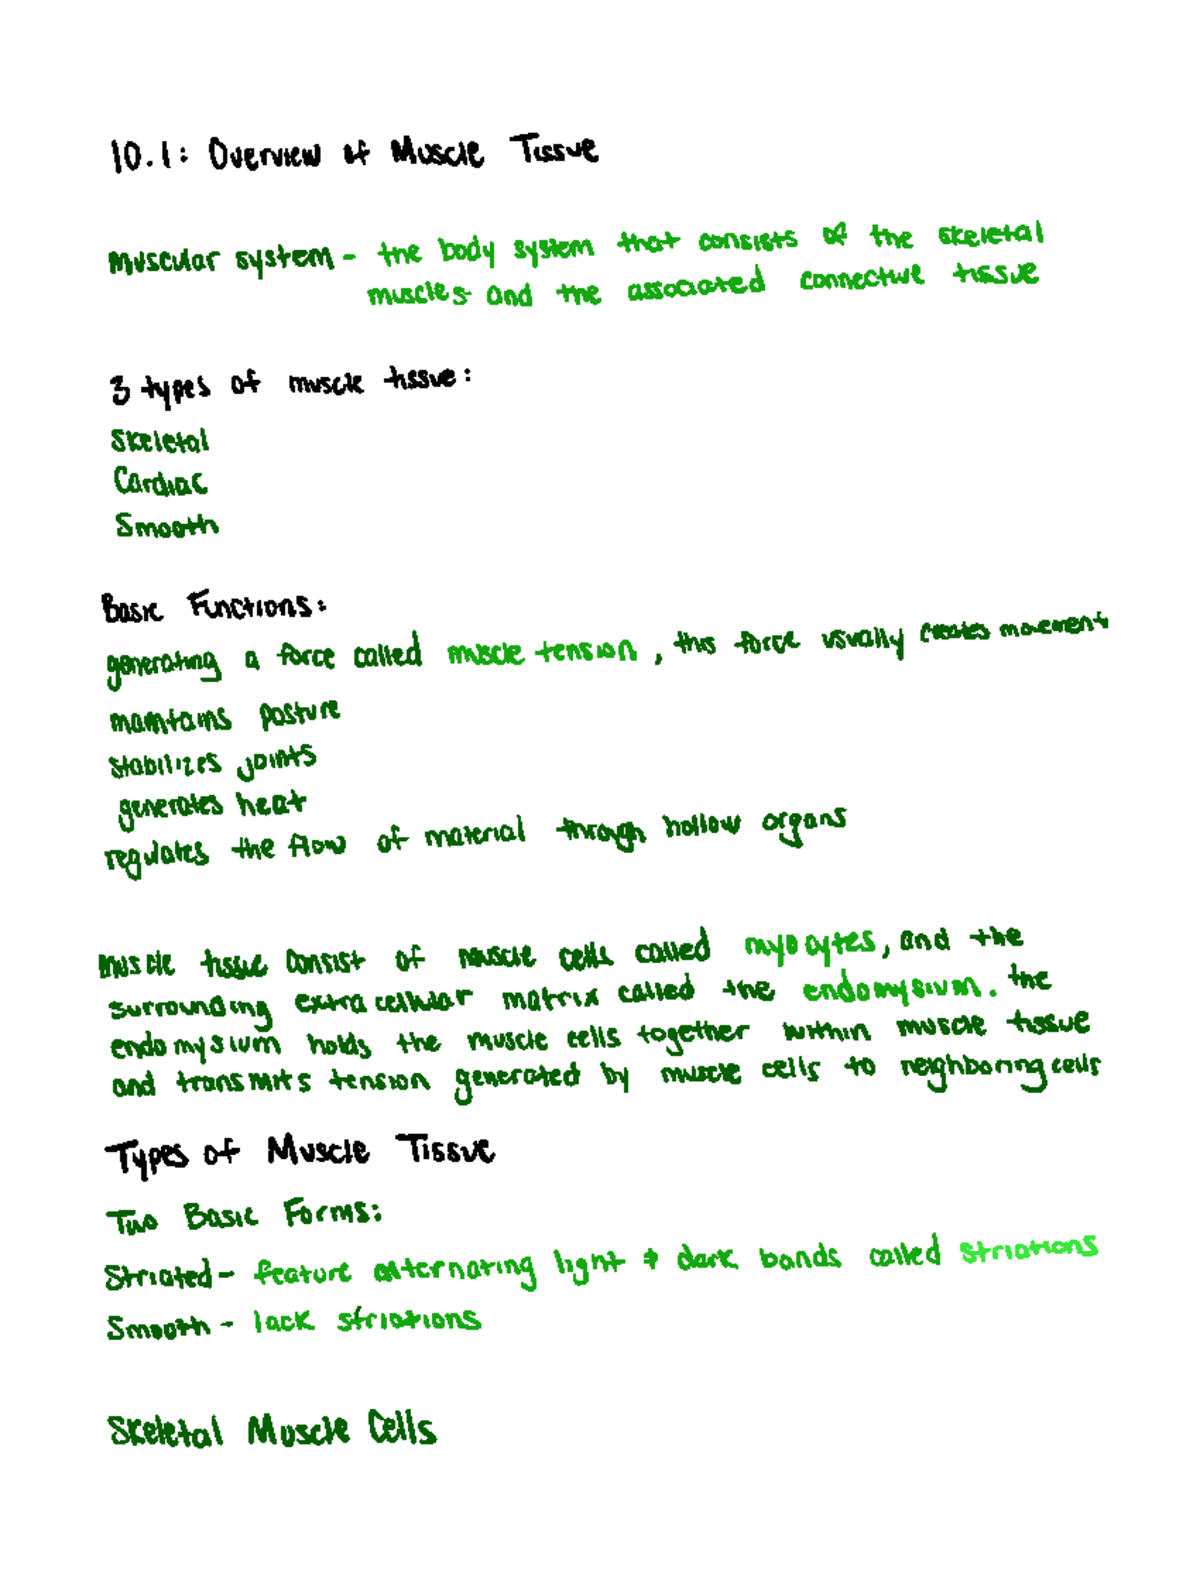 10.1: Overview of Muscle Tissue
Muscular system - the body system that consists of the skeletal
muscles and the associated connective tissue
3 types of muscle tissue:
Skeletal
Cardiac
Smooth
Basic Functions:
generating a force called muscle tension, this force usually creates movement
maintains posture
stabilizes joints
generates heat
regulates the flow of material through hollow organs
muscle tissue consist of muscle cells called myocytes, and the
surrounding extracellular matrix called the endomysium. the
endomysium holds the muscle cells together within muscle tissue
and transmits tension generated by muscle cells to neighboring cells
Types of Muscle Tissue
Two Basic Forms:
Striated - feature alternating light & dark bands called striations
Smooth - lack striations
Skeletal Muscle Cells